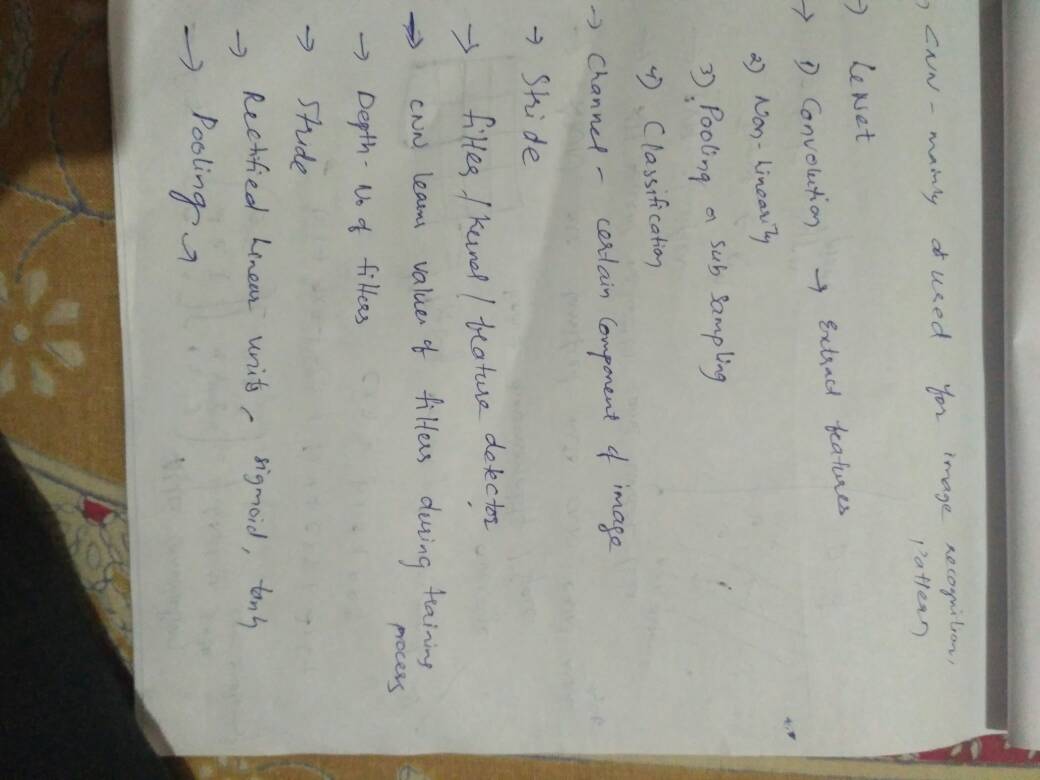 → CNN - mainly used for image recognition,
pattern
→ LeNet
→ 1) Convolution → Extract features
2) Non-Linearity
3) Pooling or Sub Sampling
4) Classification
→ Channel - certain Component of image
→ Stride
→ filter / Kernel / feature detector
→ CNN learns values of filters during training
process
→ Depth - No of filters
→ Stride
→ Rectified Linear units, sigmoid, tanh
→ Pooling →